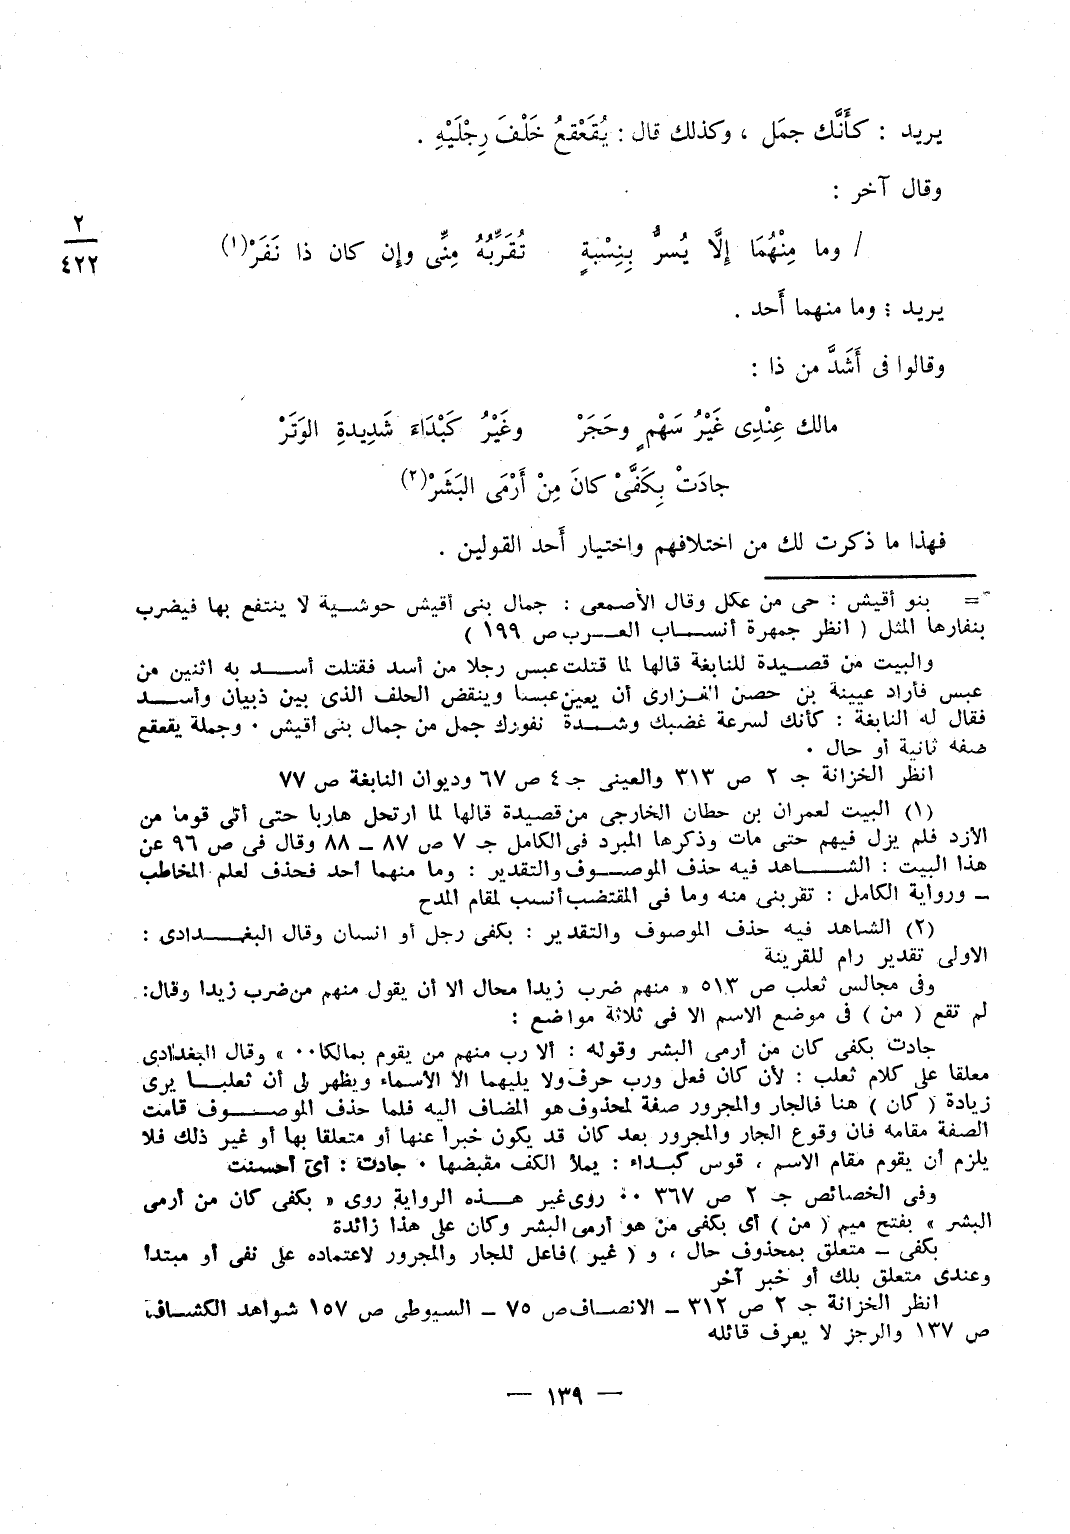 يريد : كأَنَّك جمَل ، وكذلك قال : يُقَعْقعُ خَلْفَ رِجْلَيْهِ .
وقال آخر :
٢
٤٢٢
/ وما مِنْهُمَا إِلَّا يُسرُّ بِنِسْبةٍ تُقَرِّبُهُ مِنِّى وإِن كان ذا نَفَرْ(١)
يريد : وما منهما أَحد .
وقالوا فى أَشَدَّ من ذا :
مالك عِنْدِى غَيْرُ سَهْمٍ وحَجَرْ وغَيْرُ كَبْدَاءَ شَدِيدةِ الوَتَرْ
جادَتْ بِكَفَّىْ كانَ مِنْ أَرْمَى البَشَرْ(٢)
فهذا ما ذكرت لك من اختلافهم واختيار أَحد القولين .
= بنو أقيش : حى من عكل وقال الأصمعى : جمال بنى أقيش حوشية لا ينتفع بها فيضرب
بنفارها المثل ( انظر جمهرة أنساب العرب ص ١٩٩ )
والبيت من قصيدة للنابغة قالها لما قتلت عبس رجلا من أسد فقتلت أسد به اثنين من
عبس فأراد عيينة بن حصن الفزارى أن يعين عبسا وينقض الحلف الذى بين ذبيان وأسد
فقال له النابغة : كأنك لسرعة غضبك وشدة نفورك جمل من جمال بنى أقيش ٠ وجملة يقعقع
صفة ثانية أو حال ٠
انظر الخزانة جـ ٢ ص ٣١٣ والعينى جـ ٤ ص ٦٧ وديوان النابغة ص ٧٧
(١) البيت لعمران بن حطان الخارجى من قصيدة قالها لما ارتحل هاربا حتى أتى قوما من
الأزد فلم يزل فيهم حتى مات وذكرها المبرد فى الكامل جـ ٧ ص ٨٧ ــ ٨٨ وقال فى ص ٩٦ عن
هذا البيت : الشاهد فيه حذف الموصوف والتقدير : وما منهما أحد فحذف لعلم المخاطب
ــ ورواية الكامل : تقربنى منه وما فى المقتضب أنسب لمقام المدح
(٢) الشاهد فيه حذف الموصوف والتقدير : بكفى رجل أو انسان وقال البغدادى :
الاولى تقدير رام للقرينة
وفى مجالس ثعلب ص ٥١٣ « منهم ضرب زيدا محال الا أن يقول منهم من ضرب زيدا وقال:
لم تقع ( من ) فى موضع الاسم الا فى ثلاثة مواضع :
جادت بكفى كان من أرمى البشر وقوله : ألا رب منهم من يقوم بمالكا٠٠ » وقال البغدادى
معلقا على كلام ثعلب : لأن كان فعل ورب حرف ولا يليهما الا الأسماء ويظهر لى أن ثعلبا يرى
زيادة ( كان ) هنا فالجار والمجرور صفة لمحذوف هو المضاف اليه فلما حذف الموصوف قامت
الصفة مقامه فان وقوع الجار والمجرور بعد كان قد يكون خبرا عنها أو متعلقا بها أو غير ذلك فلا
يلزم أن يقوم مقام الاسم ، قوس كبداء : يملأ الكف مقبضها ٠ جادت : أى أحسنت
وفى الخصائص جـ ٢ ص ٣٦٧ ٠٠ روى غير هذه الرواية روى « بكفى كان من أرمى
البشر » بفتح ميم ( من ) أى بكفى من هو أرمى البشر وكان على هذا زائدة
بكفى ــ متعلق بمحذوف حال ، و ( غير ) فاعل للجار والمجرور لاعتماده على نفى أو مبتدأ
وعندى متعلق بلك أو خبر آخر
انظر الخزانة جـ ٢ ص ٣١٢ ــ الانصاف ص ٧٥ ــ السيوطى ص ١٥٧ شواهد الكشاف
ص ١٣٧ والرجز لا يعرف قائله
— ١٣٩ —